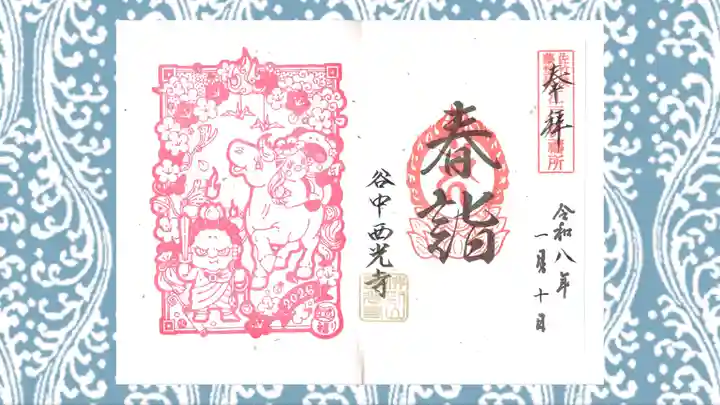 奉拝
春詣
谷中西光寺
令和八年
一月十日
2026
福